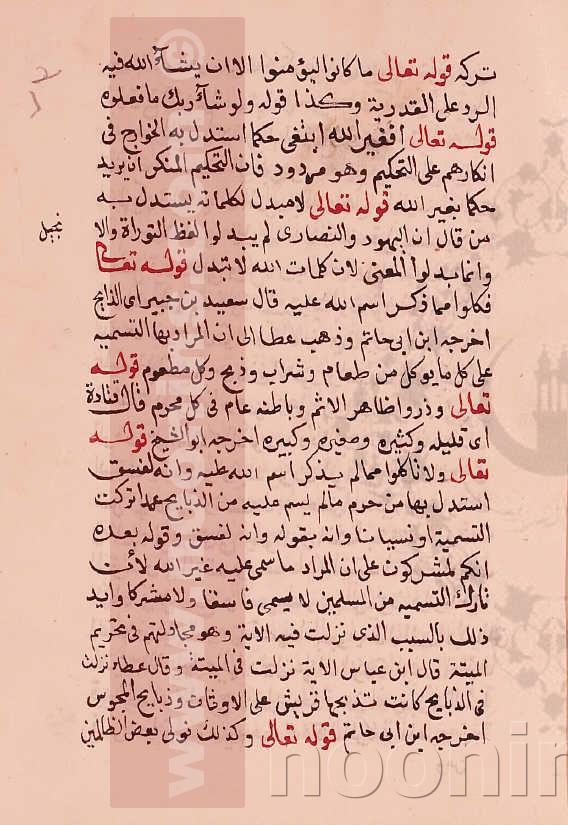 تركه قوله تعالى ما كانوا ليؤمنوا الا ان يشآء الله فيه
الرد على القدرية وكذا قوله ولو شآء ربك ما فعلوه
قوله تعالى افغير الله ابتغى حكما استدل به الخوارج فى
انكارهم على التحكيم وهو مردود فان التحكيم المنكر ان يريد
حكما بغير الله قوله تعالى لا مبدل لكلماته يستدل به
من قال ان اليهود والنصارى لم يبدلوا لفظ التوراة والا
نجيل
وانما بدلوا المعنى لان كلمات الله لا تبدل قوله تعالى
فكلوا مما ذكر اسم الله عليه قال سعيد بن جبير اى الذابح
اخرجه ابن ابى حاتم وذهب عطا الى ان المراد بها التسمية
على كل ما يوكل من طعام وشراب وذبح وكل مطعوم قوله
تعالى وذروا ظاهر الاثم وباطنه عام فى كل محرم قال قتادة
اى قليله وكثيره وصغيره وكبيره اخرجه ابو الشيخ قوله
تعالى ولا تاكلوا مما لم يذكر اسم الله عليه وانه لفسق
استدل بها من حرم ما لم يسم عليه من الذبايح عمدا تركت
التسمية او نسيانا وانه بقوله وانه لفسق وقوله بعده
انكم لمشركون على ان المراد ما سمى عليه غير الله لأن
تارك التسميه من المسلمين لا يسمى فاسقا ولا مشركا وايد
ذلك بالسبب الذى نزلت فيه الاية وهو مجادلتهم فى تحريم
الميتة قال ابن عباس الاية نزلت فى الميتة وقال عطاء نزلت
فى الذبايح كانت تذبحها قريش على الاوثان وذبايح المجوس
اخرجه ابن ابى حاتم قوله تعالى وكذلك نولى بعض الظالمين
noonin